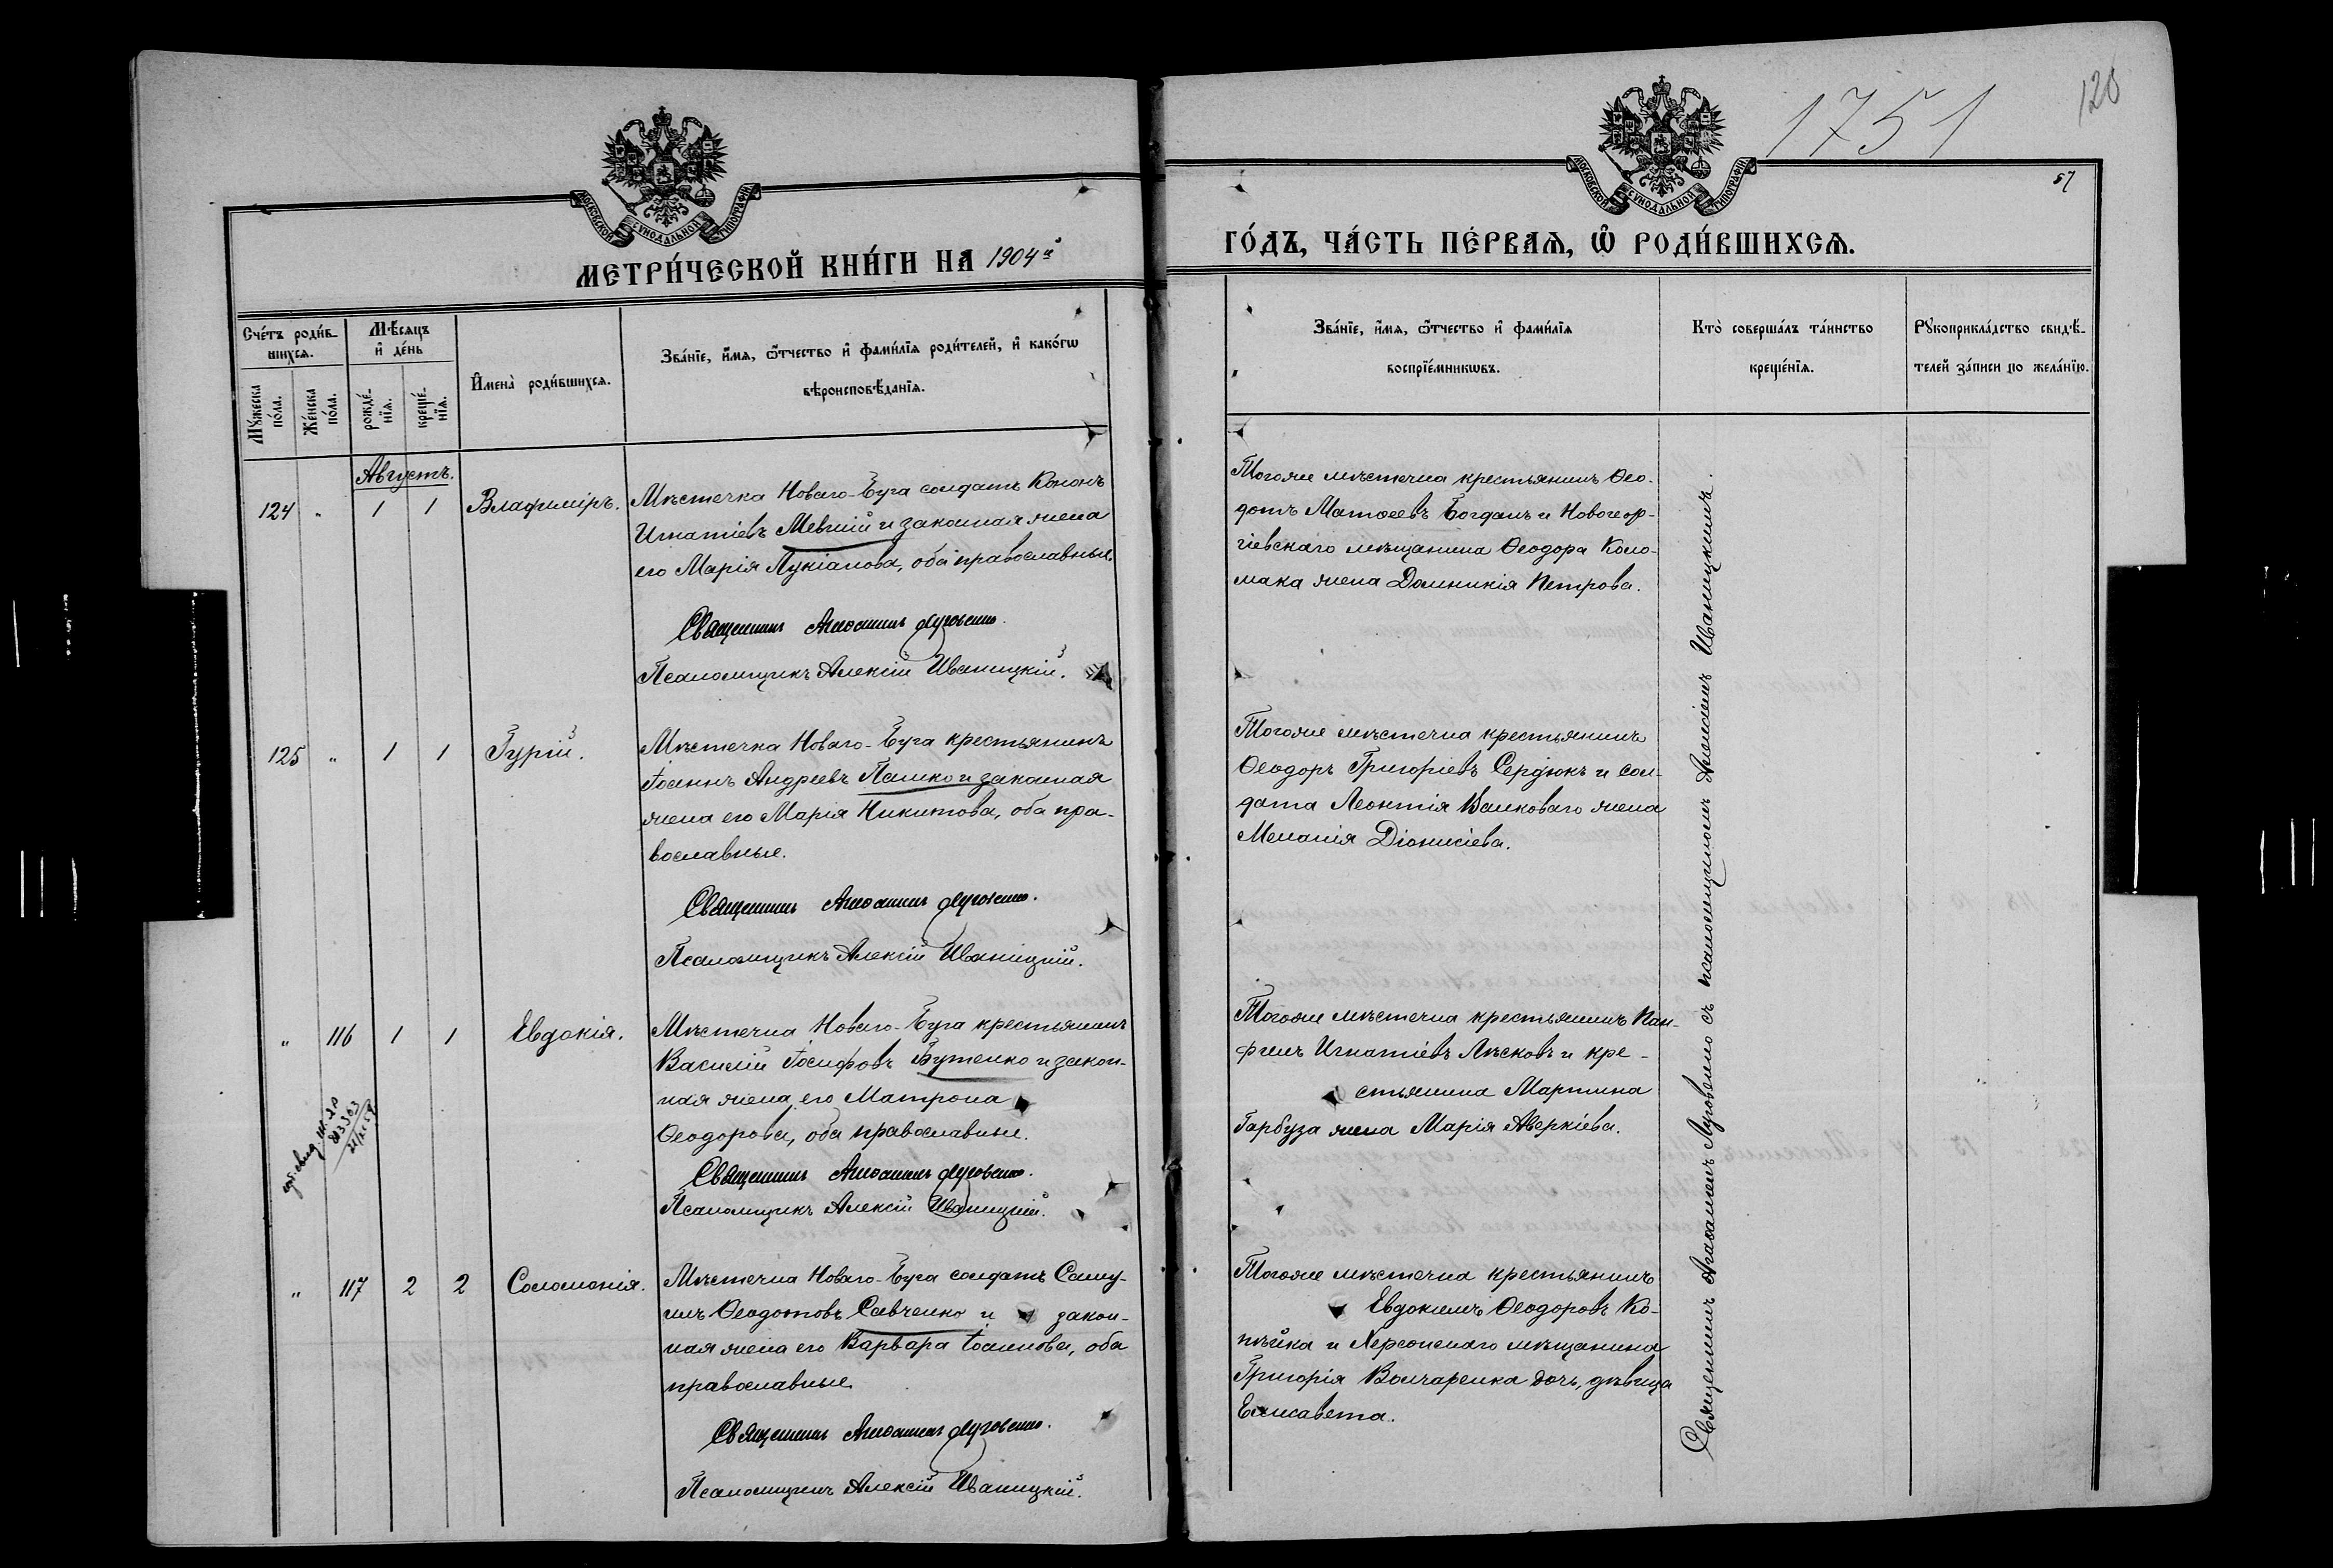 МОСКОВСКОЙ СѴНОДАЛЬНОЙ ТИПОГРАФІИ
МЕТРИ́ЧЕСКОЙ КНИ́ГИ НА 1904й
Сче́тъ роди́в-
шихсѧ.
Мꙋ́жеска
по́ла.
Же́нска
по́ла.
Мѣ́сѧцъ
и҆ де́нь
рожде́-
нїѧ.
креще́-
нїѧ.
И҆мена̀ роди́вшихсѧ.
Зва́нїе, и҆́мѧ, ѻ҆́тчество и҆ фами́лїѧ роди́телей, и҆ како́гѡ
вѣроисповѣ́данїѧ.
Августъ.
124 " 1 1 Владиміръ.
Мѣстечка Новаго-Буга солдатъ Кононъ
Игнатіевъ Мевшій и законная жена
его Марія Лукіанова, оба православные.
Священникъ Агаѳангелъ Луговенко.
Псаломщикъ Алексій Иваницкій.
125 " 1 1 Гурій.
Мѣстечка Новаго-Буга крестьянинъ
Іоаннъ Андреевъ Пашко и законная
жена его Марія Никитова, оба пра-
вославные.
Священникъ Агаѳангелъ Луговенко.
Псаломщикъ Алексій Иваницкій.
" 116 1 1 Евдокія.
Мѣстечка Новаго-Буга крестьянинъ
Василій Іосифовъ Бутенко и закон-
ная жена его Матрона
Ѳеодорова, оба православные.
Священникъ Агаѳангелъ Луговенко.
Псаломщикъ Алексій Иваницкій.
" 117 2 2 Соломонія.
Мѣстечка Новаго-Буга солдатъ Саму-
илъ Ѳеодотовъ Савченко и закон-
ная жена его Варвара Іоаннова, оба
православные
Священникъ Агаѳангелъ Луговенко.
Псаломщикъ Алексій Иваницкій.
1751
МОСКОВСКОЙ СѴНОДАЛЬНОЙ ТИПОГРАФІИ
57
ГО́ДЪ, ЧА́СТЬ ПЕ́РВАѦ, Ѡ҆ РОДИ́ВШИХСѦ.
Зва́нїе, и҆́мѧ, ѻ҆́тчество и҆ фами́лїѧ
воспрїе́мникѡвъ.
Кто̀ соверша́лъ та́инство
креще́нїѧ.
Рꙋкоприкла́дство свидѣ́-
телей за́писи по жела́нїю.
Тогоже мѣстечка крестьянинъ Ѳео-
дотъ Матѳеевъ Богданъ и Новогеор-
гіевскаго мѣщанина Ѳеодора Коло-
мака жена Домникія Петрова.
Тогоже мѣстечка крестьянинъ
Ѳеодоръ Григоріевъ Сердюкъ и сол-
дата Леонтія Валковаго жена
Меланія Діонисіева.
Тогоже мѣстечка крестьянинъ Пан-
филъ Игнатіевъ Лѣсковъ и кре-
стьянина Мартина
Гарбуза жена Марія Аверкіева.
Тогоже мѣстечка крестьянинъ
Евдокимъ Ѳеодоровъ Ко-
пѣйка и Херсонскаго мѣщанина
Григорія Вончаренка дочь, дѣвица
Елисавета.
Священникъ Агаѳангелъ Луговенко съ псаломщикомъ Алексіемъ Иваницкимъ.